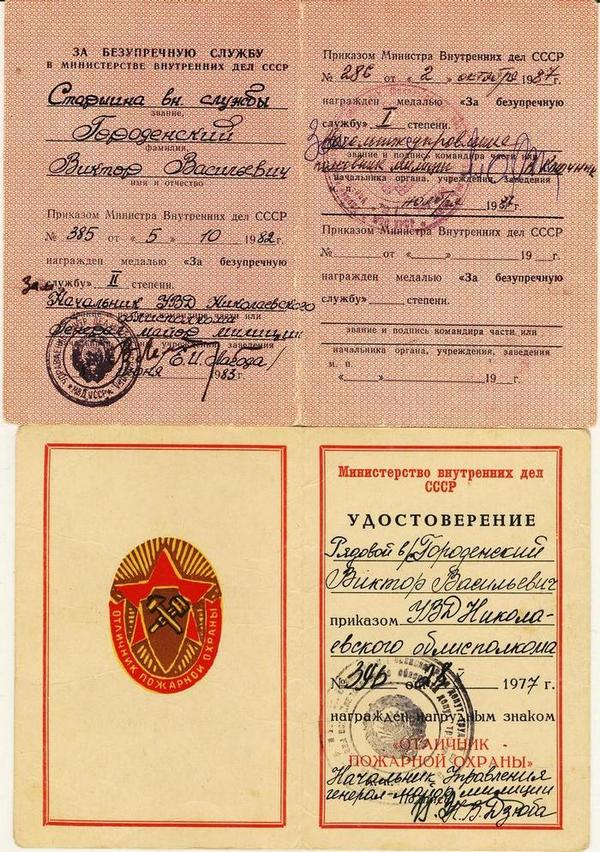 ЗА БЕЗУПРЕЧНУЮ СЛУЖБУ
В МИНИСТЕРСТВЕ ВНУТРЕННИХ ДЕЛ СССР
Старшина вн. службы
звание,
Городенский
фамилия,
Виктор Васильевич
имя и отчество
Приказом Министра Внутренних дел СССР
№ 385 от «5» 10 1982 г.
награжден медалью «За безупречную
службу» II степени.
Зам
Начальник УВД Николаевского
облисполкома
Генерал майор милиции
Е.И. Нагода/
1983 г.
Приказом Министра Внутренних дел СССР
№ 286 от «2» октября 1987 г.
награжден медалью «За безупречную
службу» I степени.
звание и подпись командира части или
полковник милиции
начальника органа, учреждения, заведения
м. п.
ноября 1987
Приказом Министра Внутренних дел СССР
№ от « » 19 г.
награжден медалью «За безупречную
службу» степени.
звание и подпись командира части или
начальника органа, учреждения, заведения
м. п.
« » 19 г.
ОТЛИЧНИК ПОЖАРНОЙ ОХРАНЫ
Министерство внутренних дел
СССР
УДОСТОВЕРЕНИЕ
Рядовой в/с Городенский
Виктор Васильевич
приказом УВД Никола-
евского облисполкома
№ 395 от 1977 г.
награжден нагрудным знаком
«ОТЛИЧНИК
ПОЖАРНОЙ ОХРАНЫ»
Начальник Управления
генерал-майор милиции
В. Дзюба